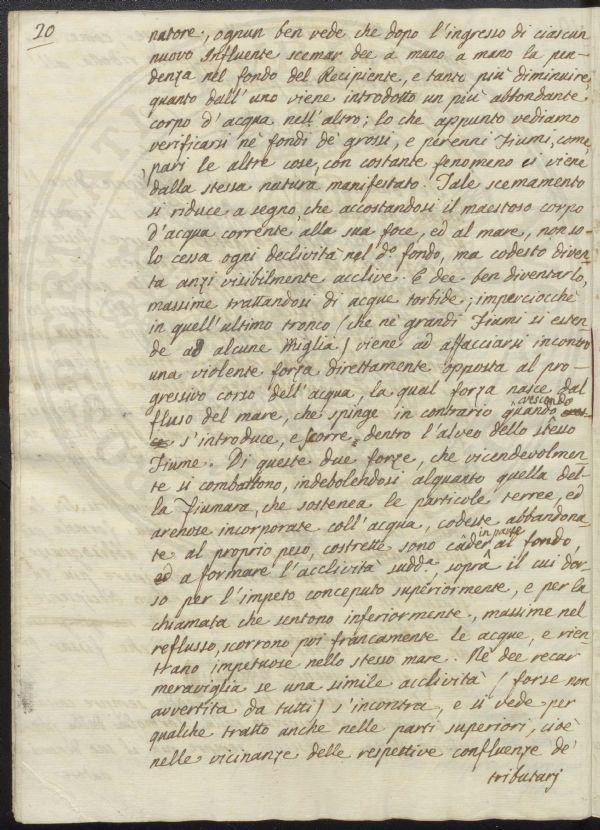 20
natore, ognun ben vede che dopo l'ingresso di ciascun
nuovo Influente scemar dee a mano a mano la pen-
denza nel fondo del Recipiente, e tanto più diminuire,
quanto dall'uno viene introdotto un più abbondante
corpo d'acqua nell'altro; lo che appunto vediamo
verificarsi nè fondi dè grossi, e perenni Fiumi, come,
pari le altre cose, con costante fenomeno ci viene
dalla stessa natura manifestato. Tale scemamento
si riduce a segno, che accostandosi il maestoso corpo
d'acqua corrente alla sua foce, ed al mare, non so-
lo cessa ogni declività nel do. fondo, ma codesto diven-
ta anzi visibilmente acclive. E dee ben diventarlo,
massime trattandosi di acque torbide; imperciocchè
in quell'ultimo tronco (che nè grandi Fiumi si esten-
de ad alcune Miglia) viene ad affacciarsi incontro
una violente forza direttamente opposta al pro-
gressivo corso dell'acqua, la qual forza nasce dal
flusso del mare, che spinge in contrario quando crescendo
s'introduce, e scorre dentro l'alveo dello stesso
Fiume. Di queste due forze, che vicendevolmen-
te si combattono, indebolendosi alquanto quella del-
la Fiumara, che sostenea le particole terree, ed
arenose incorporate coll'acqua, codeste abbandona-
te al proprio peso, costrette sono càder in parte al fondo,
ed a formare l'acclività sudda, sopra il cui dor-
so per l'impeto conceputo superiormente, e per la
chiamata che sentono inferiormente, massime nel
reflusso, scorrono poi francamente le acque, e rien-
trano impetuose nello stesso mare. Nè dee recar
meraviglia se una simile acclività (forse non
avvertita da tutti) s'incontra, e si vede per
qualche tratto anche nelle parti superiori, cioè
nelle vicinanze delle respettive confluenze dè
tributarj